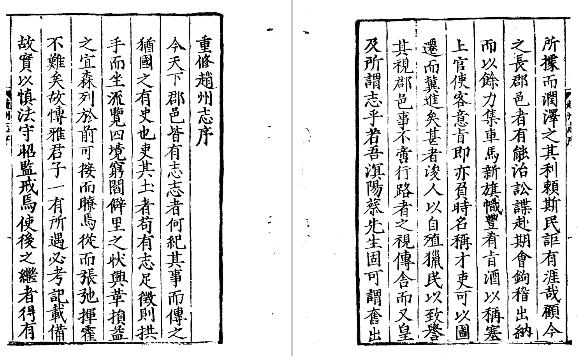 重修趙州志序
今天下郡邑皆有志志者何紀其事而傳之
猶國之有史也吏其土者苟有志足徵則拱
手而坐流覽四境窮閻僻里之狀興革損益
之宜森列於前可按而睹焉從而張弛揮霍
不難矣故博雅君子一有所遇必考記載備
故實以慎法守昭監戒焉使後之繼者得有
所據而潤澤之其利賴斯民詎有涯哉顧今
之長郡邑者有能治訟諜赴期會鉤稽出納
而以餘力集車馬新旗幟豐肴旨酒以稱塞
上官使客意旨即亦負時名稱才吏可以圖
遷而冀進矣甚者浚人以自殖獵民以致譽
其視郡邑事不啻行路者之視傳舍而又皇
及所謂志乎若吾滇陽蔡先生固可謂奮出